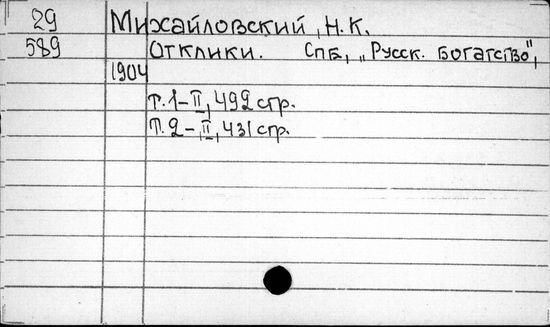 29 Михайловский, Н.К.
589 Отклики. Спб, „Русск. Богатство",
1904
т.1-II, 492 стр.
т.2-II, 431 стр.